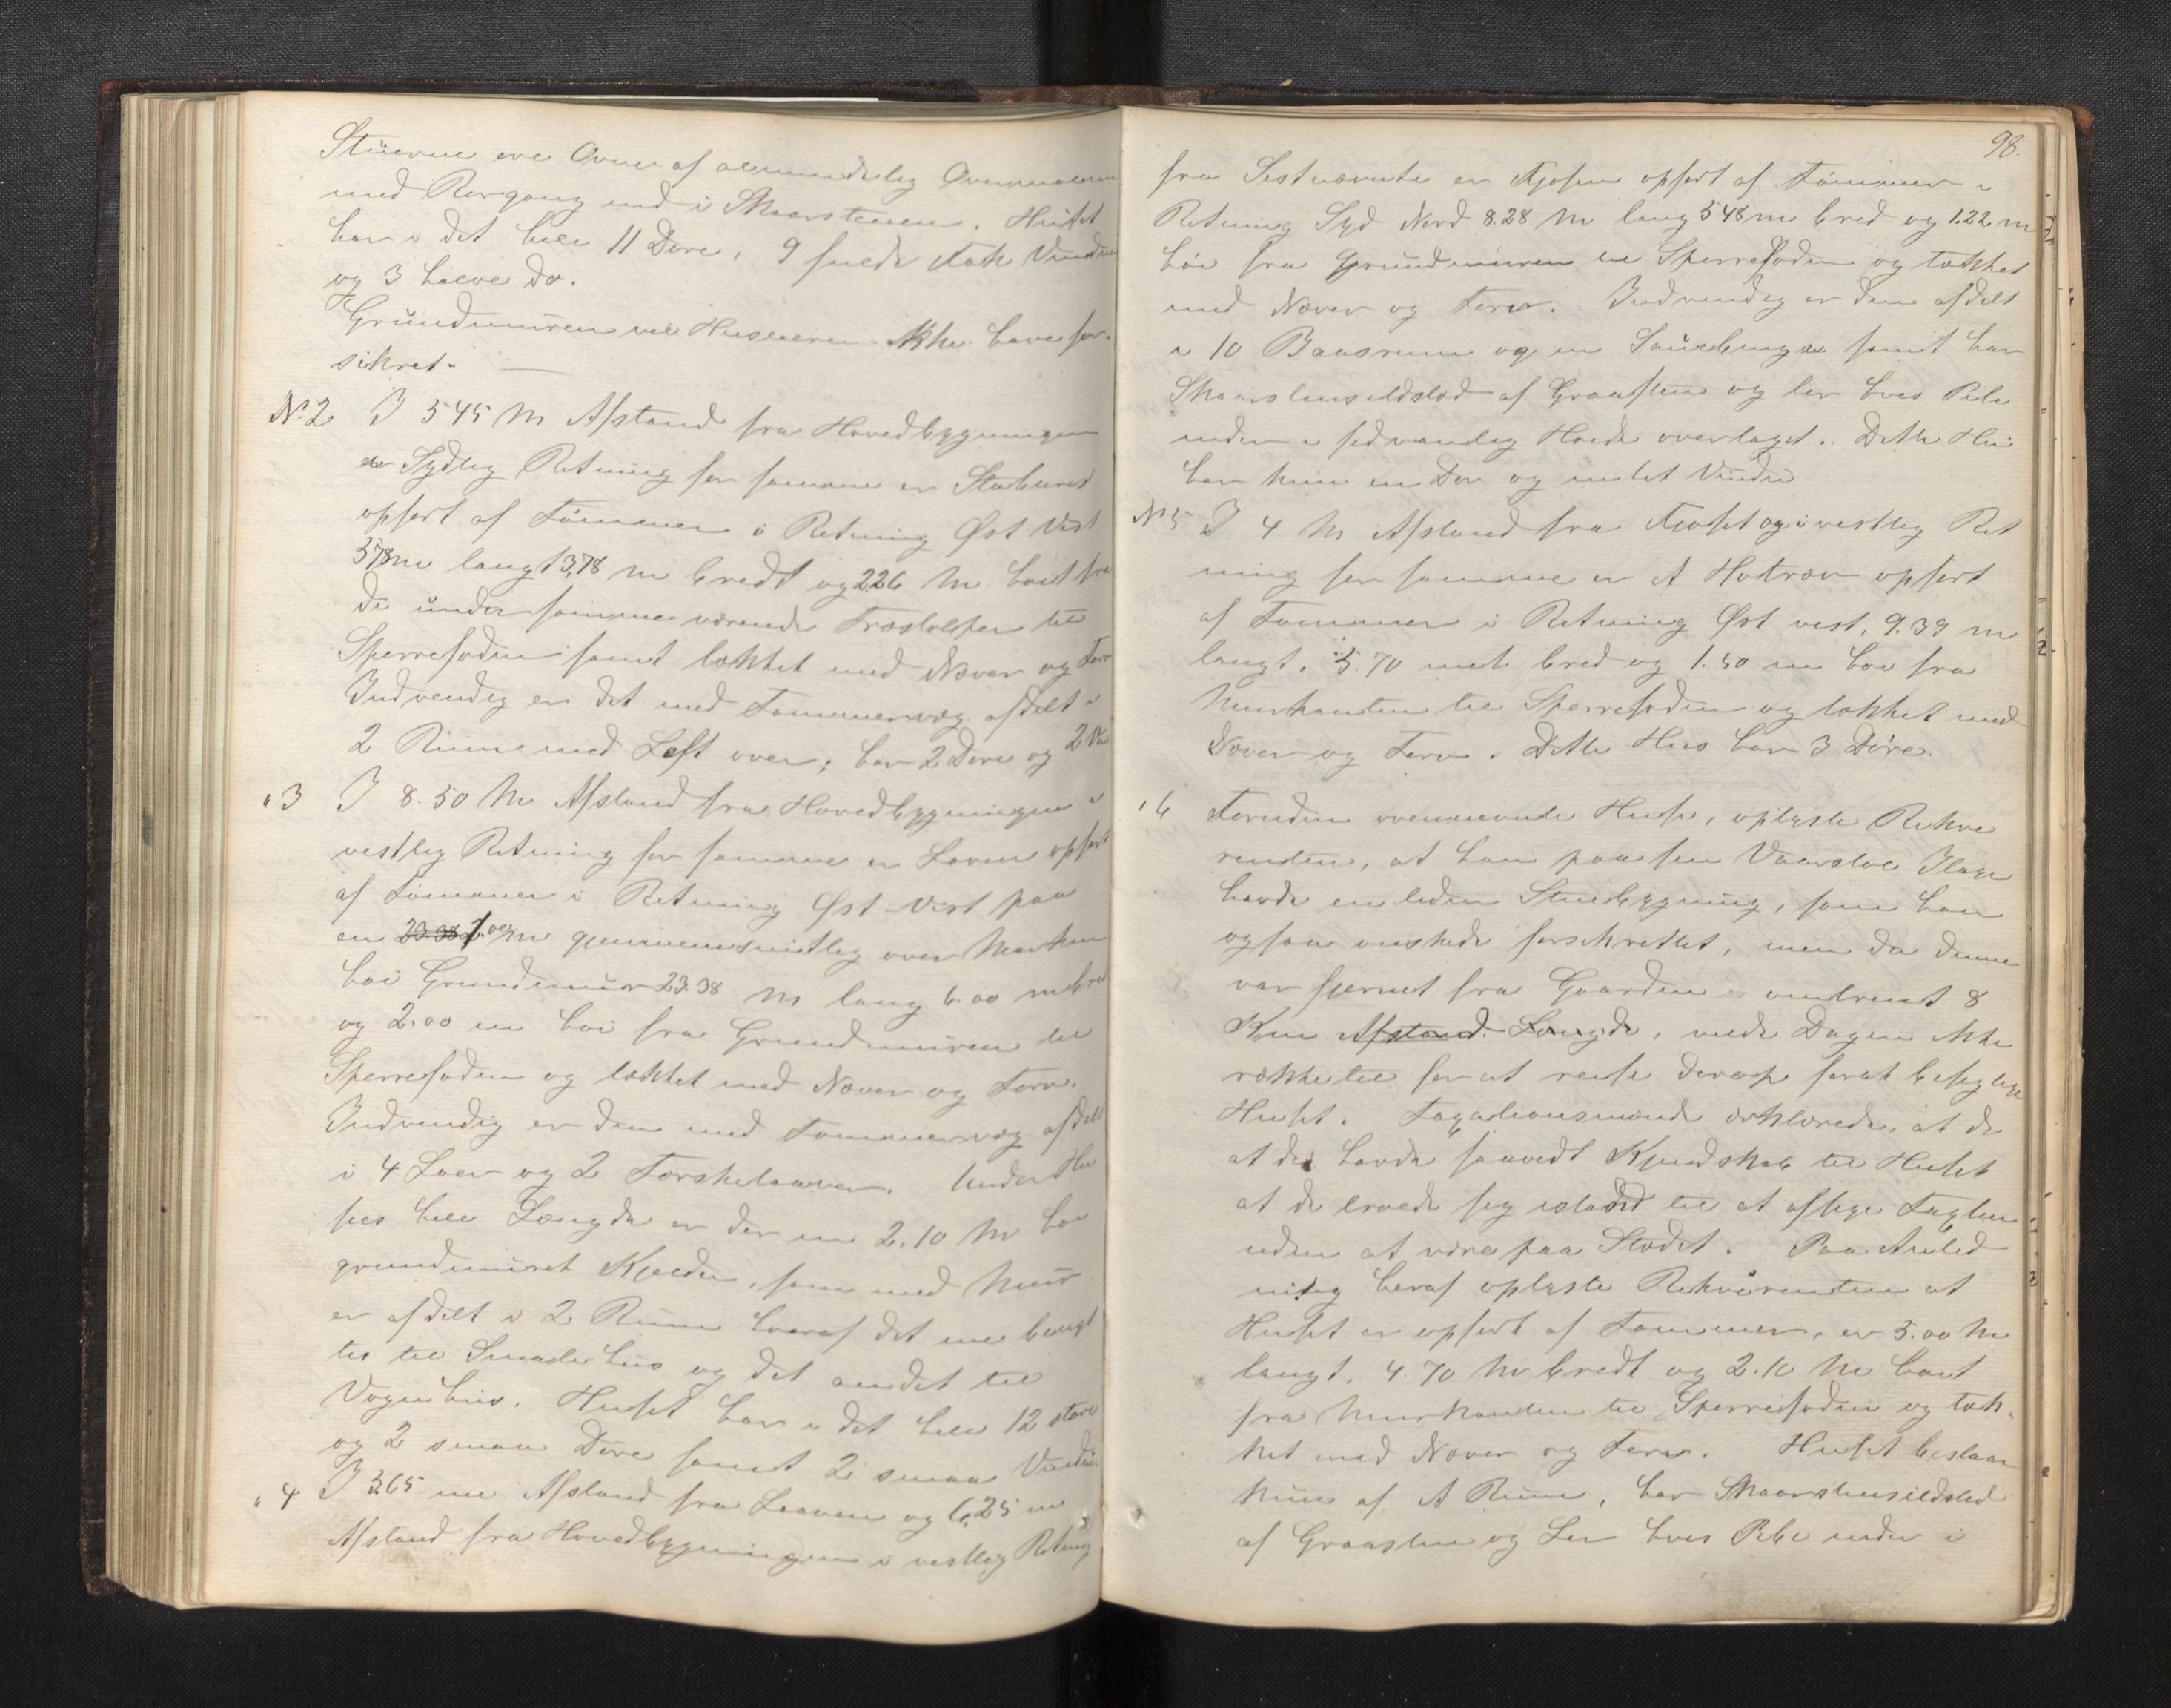 Stuerne ere Ovne af almindelig
med Rørgang ind i Skaarstenen. Huset
har i det hele 11 Døre, 9 fulde Fak Vinduer
og 3 halve do.
Grundmuren vil Huseieren ikke have for-
sikret. —
No. 2 I 545 m Afstand fra Hovedbygningen
Sydlig Retning for samme er Stabburet
opført af Tømmer i Retning Øst Vest
378 m langt 3,78 m bredt og 2.26 m høit fra
de under samme værende Træstolper til
Sperrefoden samt tækket med Næver og Torv
Indvendig er det med Tømmervæg afdelt i
2 Rum med Loft over; har 2 Døre og 2
" 3 I 8.50 m Afstand fra Hovedbygningen i
vestlig Retning for samme er Loven opført
af Tømmer i Retning Øst-Vest paa
en 23.38 1.00 m gjennemsnitlig over Marken
høi Grundmur 23.38 m lang 6.00 m bred
og 2.00 m høi fra Grundmuren til
Sperrefoden og tækket med Næver og Torv.
Indvendig er den med Tømmervæg afdelt
i 4 Loer og 2 Tørskelaaver. Under Hu
sets hele Længde er der en 2.10 m høi
grundmuret Kjelder, som med Mur
er afdelt i 2 Rum hvoraf det ene benyt
tes til Smalehus og det andet til
Vognhus. Huset har i det hele 12 store
og 2 smaa Døre samt 2 smaa Vinduer
" 4 I 365 m Afstand fra Laaven og 6,25 m
Afstand fra Hovedbygningen i vestlig Retning
98.
fra Sistnævnte er Fjøsen opført af Tømmer i
Retning Syd Nord 8.28 m lang 548 m bred og 1.22 m
høi fra Grundmuren til Sperrefoden og tækket
med Næver og Torv. Indvendig er den afdelt
i 10 Baasrum og en Sauebinge samt har
Skaarstensildsted af Graasten og ler hvis Pibe
ender i sedvanlig Høide over taget. Dette Hus
har kun en Dør og intet Vindu
No 5 I 4 m Afstand fra Fjøset og i vestlig Ret
ning for samme er et opført
af Tømmer i Retning Øst vest, 9.39 m
langt, 5.70 met bred og 1.50 m høi fra
Murkanten til Sperrefoden og tækket med
Næver og Torv. Dette Hus har 3 Døre.
" 6 Foruden ovennævnte Huse, oplyste Rekvi
renten, at han paa sin Vaarstøl
havde en liden Stuebygning, som han
ogsaa ønskede forsikret, men da denne
var fjernet fra Gaarden omtrent 8
Km Afstand Længde, vilde Dagen ikke
række til for at reise derop forat besigtige
Huset. Taxationsmænd erklærede, at de
at de havde saavidt Kjendskab til Huset
at de troede sig istand til at afgive Taxten
uden at være paa Stedet. Paa Anled
ning heraf oplyste Rekvirenten at
Huset er opført af Tømmer, er 5.00 m
langt, 4.70 m bredt og 2.10 m høit
fra Murkanten til Sperrefoden og tæk-
ket med Næver og Torv. Huset bestaar
kun af et Rum, har Skaarstensildsted
af Graasten og Ler hvis Pibe ender i